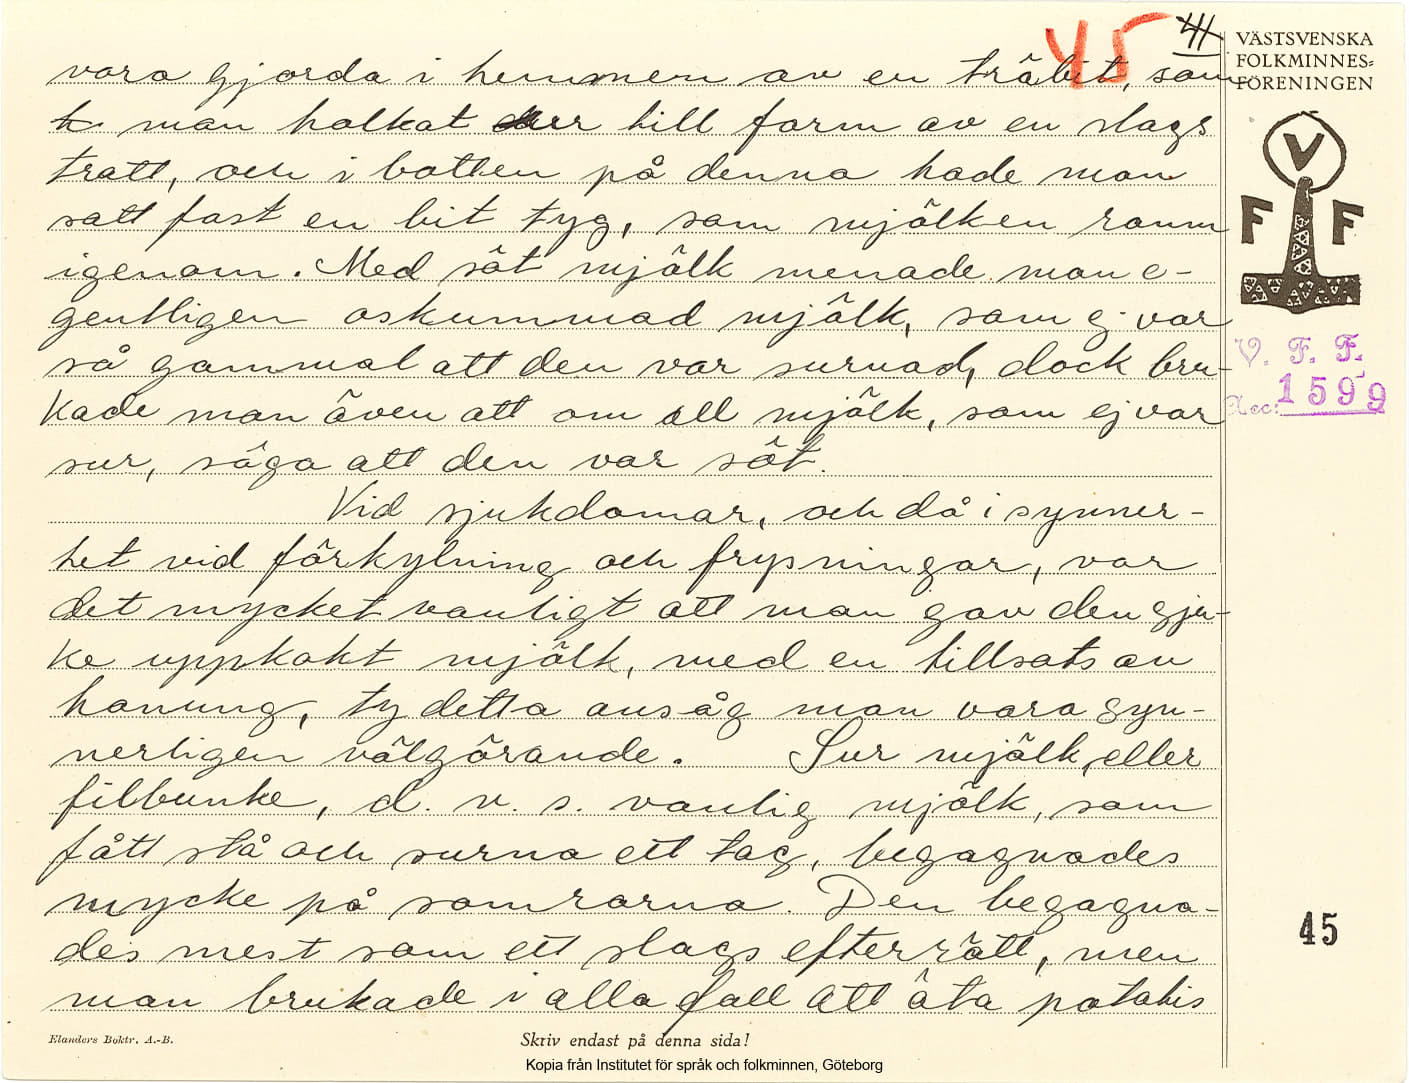 45 41
VÄSTSVENSKA
FOLKMINNES=
FÖRENINGEN
V
F F
V. F. F.
Acc: 1599
vara gjorda i hemmen av en träbit, som
man holkat ur till form av en slags
tratt, och i botten på denna hade man
satt fast en bit tyg, som mjölken rann
igenom. Med söt mjölk menade man e-
gentligen oskummad mjölk, som ej var
så gammal att den var surnad, dock bru-
kade man även att om all mjölk, som ej var
sur, säga att den var söt.
Vid sjukdomar, och då i synner-
het vid förkylning och frysningar, var
det mycket vanligt att man gav den sju-
ke uppkokt mjölk, med en tillsats av
honung, ty detta ansåg man vara syn-
nerligen välgörande. Sur mjölk, eller
filbunke, d. v. s. vanlig mjölk, som
fått stå och surna ett tag, begagnades
mycke på somrarna. Den begagna-
des mest som ett slags efterrätt, men
man brukade i alla fall att äta potatis
45
Elanders Boktr. A.-B.
Skriv endast på denna sida!
Kopia från Institutet för språk och folkminnen, Göteborg